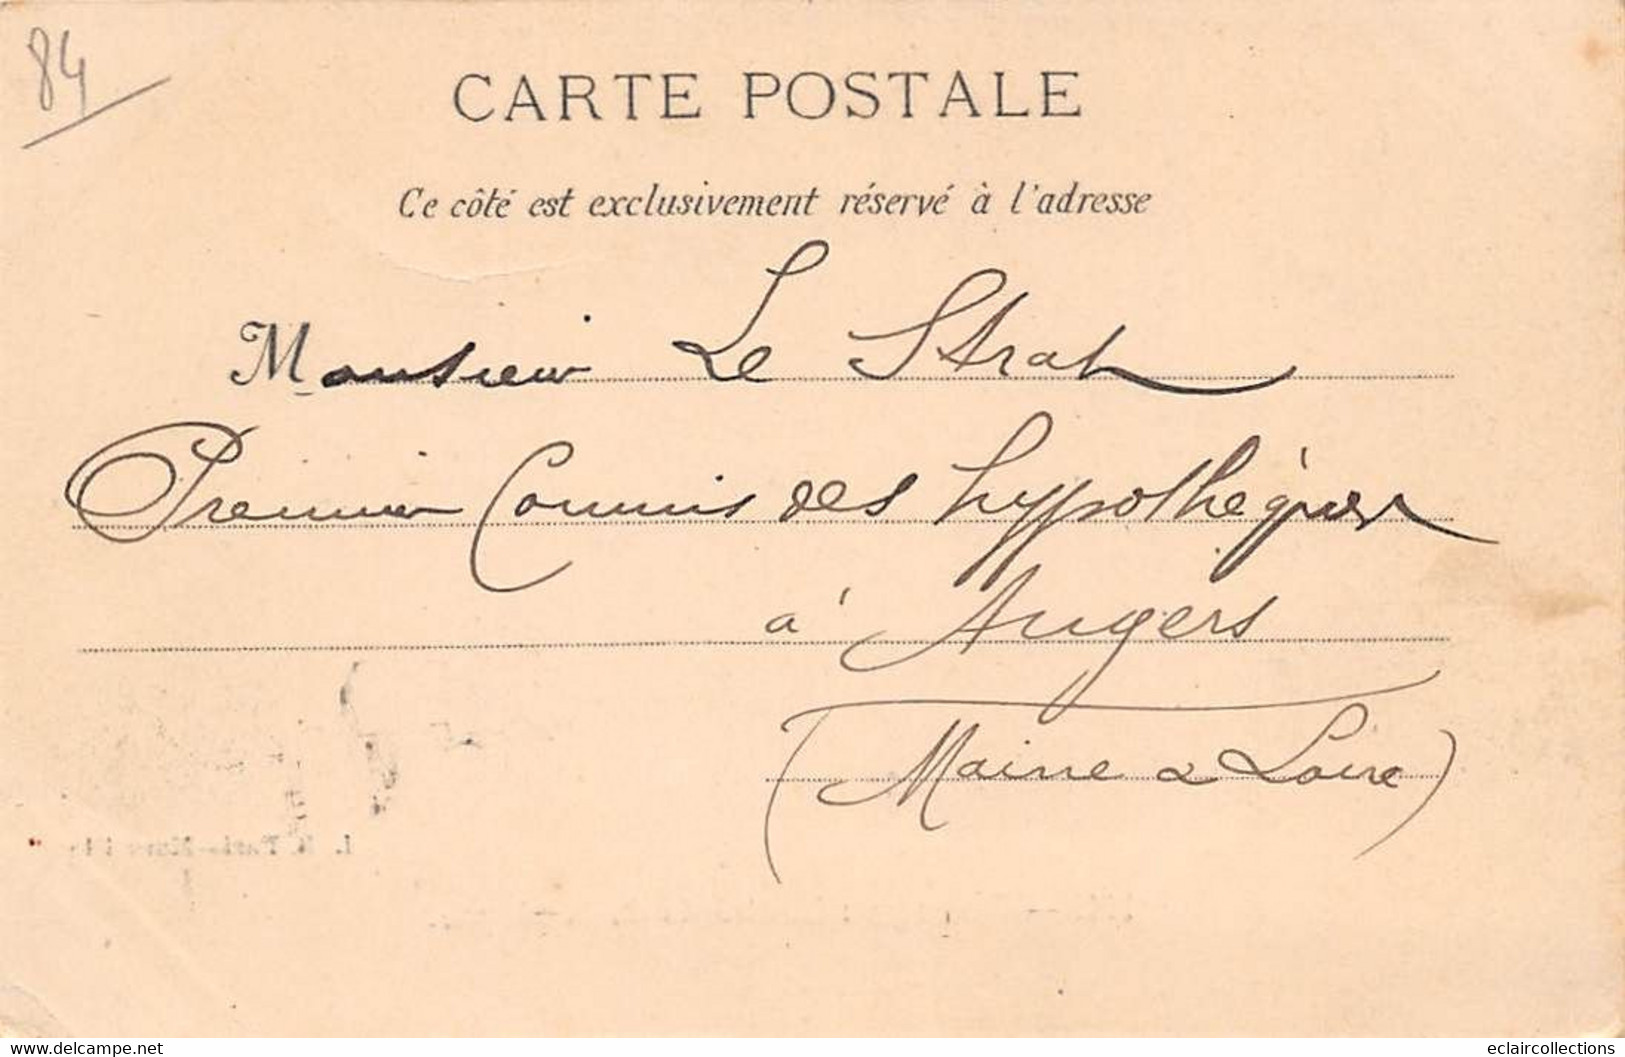 84
CARTE POSTALE
Ce côté est exclusivement réservé à l'adresse
Monsieur Le Strat
Premier Commis des hypothèques
à Angers
(Maine & Loire)
www.delcampe.net
eclaircollections